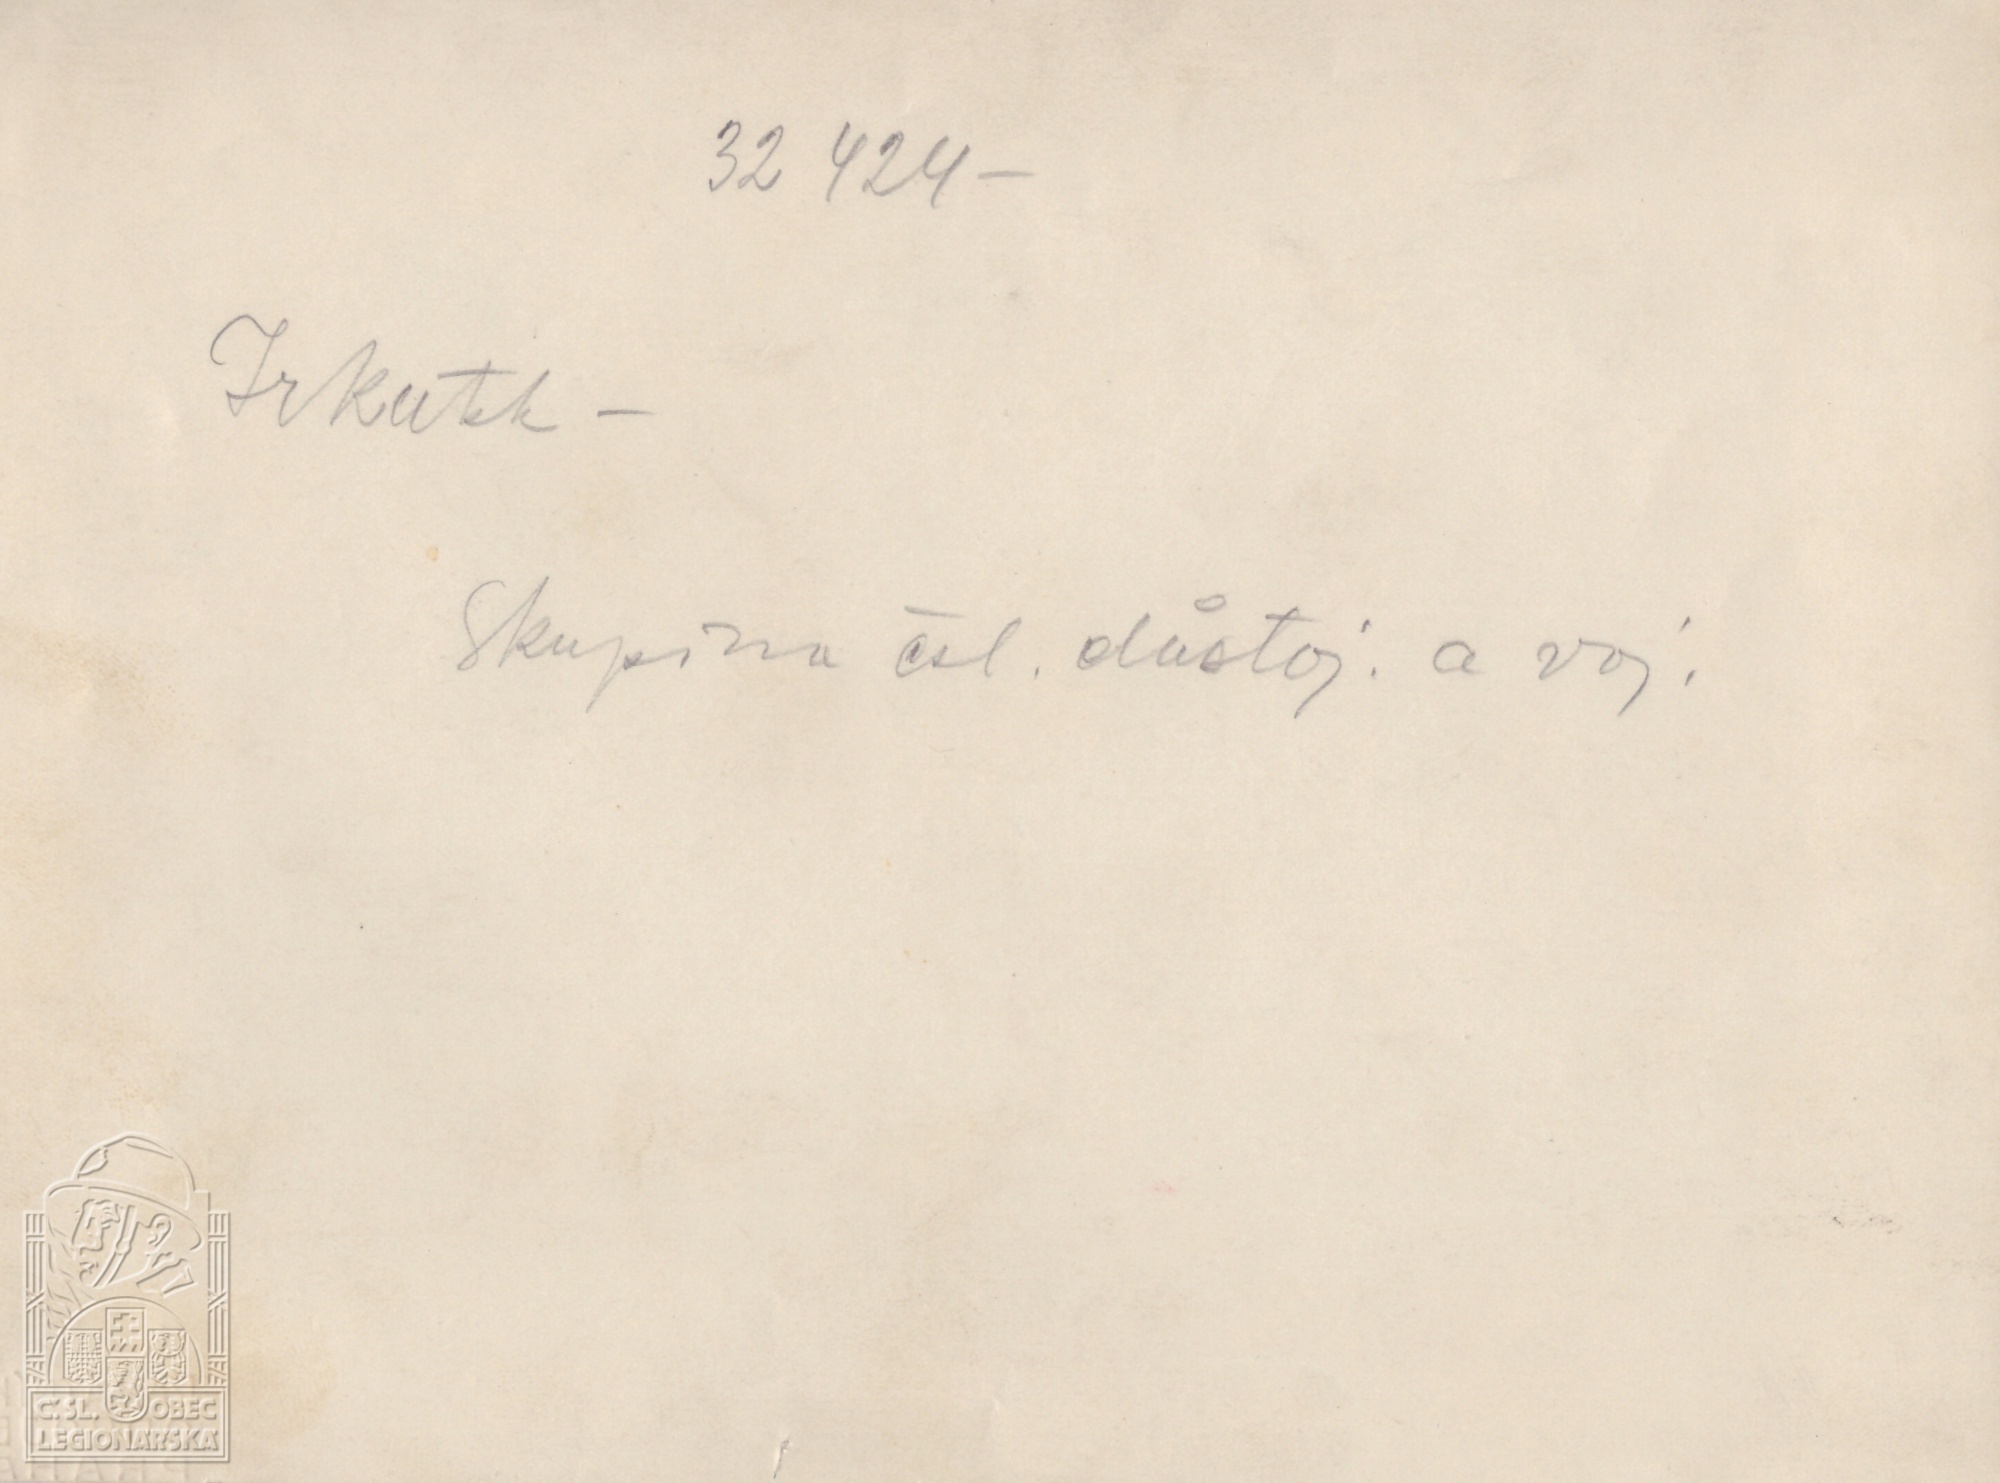 32 424-
Irkutsk -
Skupina čsl. důstoj. a voj.
Č.SL. OBEC
LEGIONÁŘSKÁ